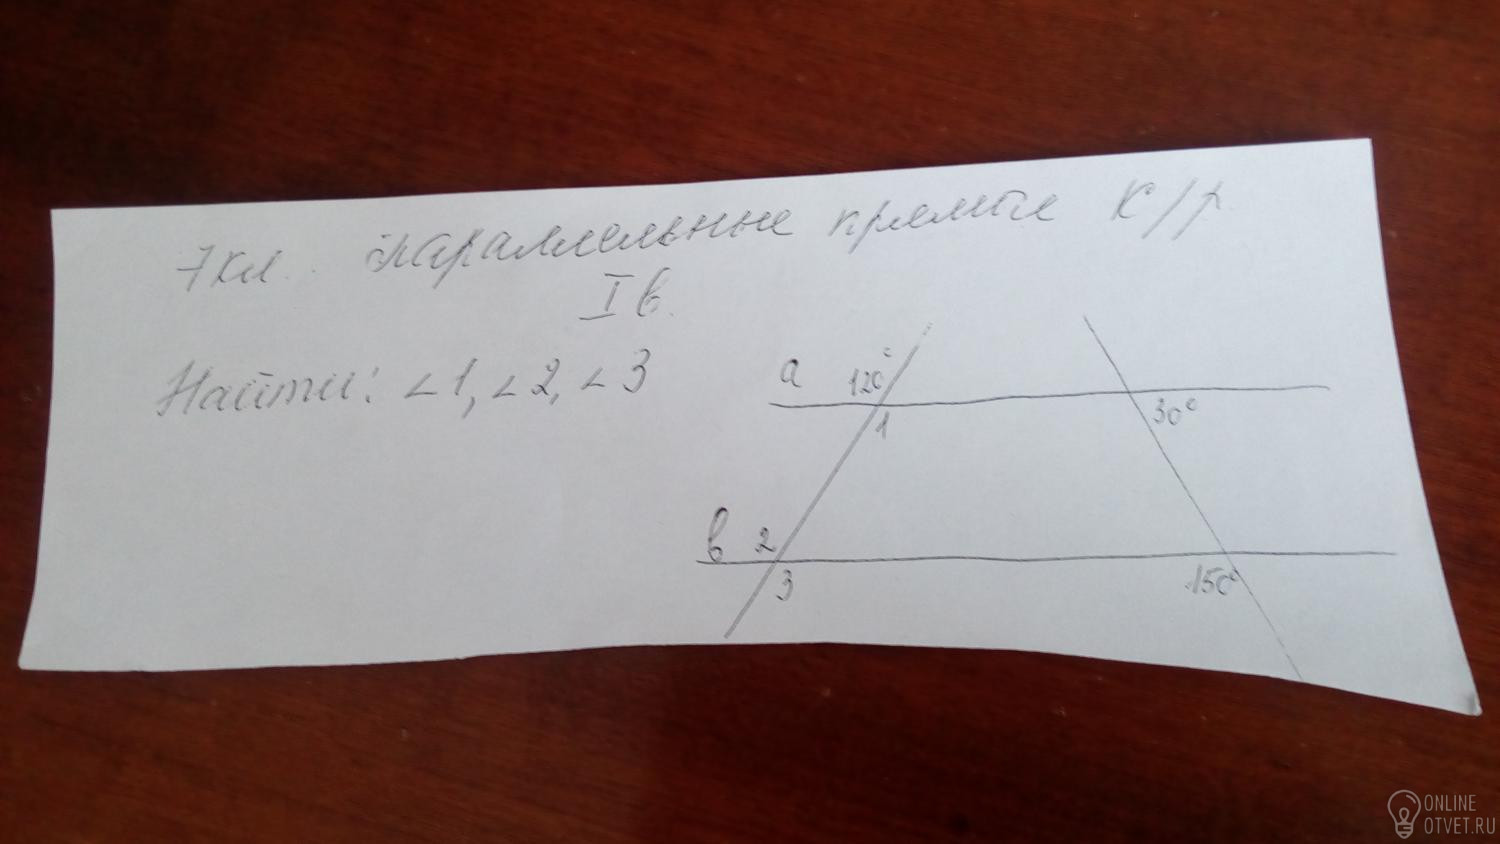 7 кл. Параллельные прямые К/р.
I в.
Найти: ∠1, ∠2, ∠3
a 120°
30°
1
в 2
3 150°
ONLINE
OTVET.RU